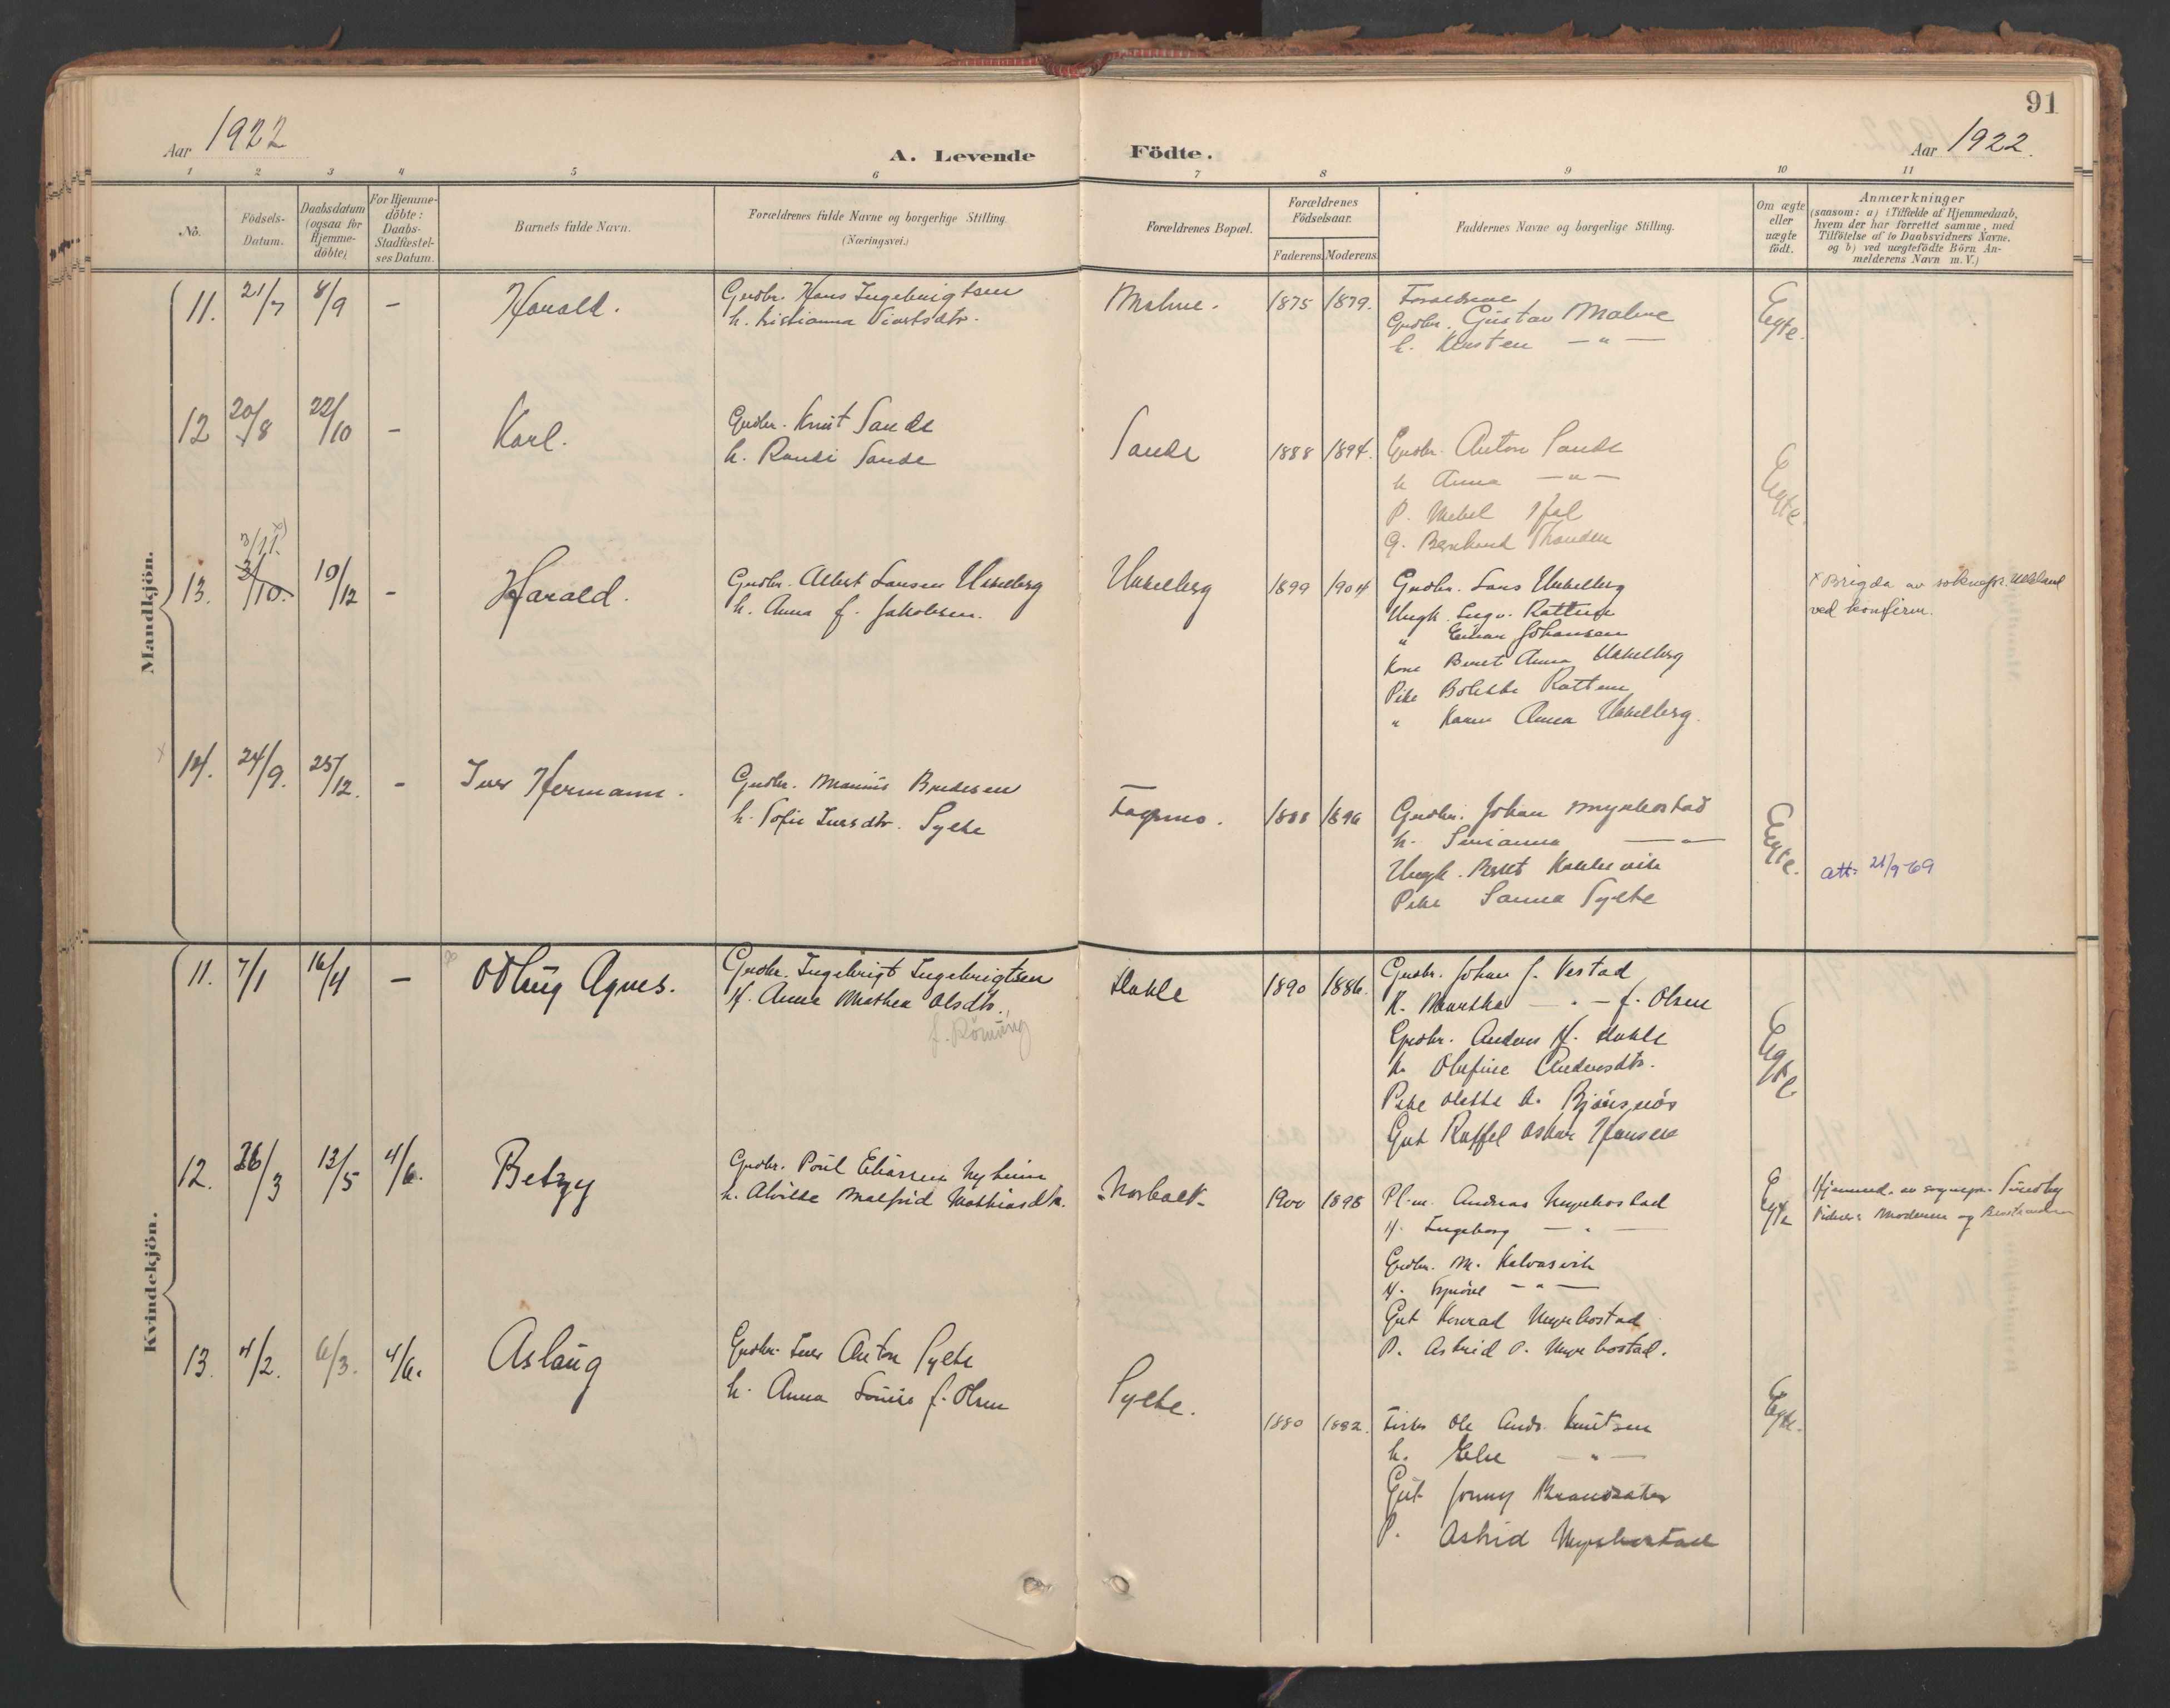 91
Aar 1922
A. Levende Födte.
Aar 1922.
1 2 3 4 5 6 7 8 9 10 11
No.
Födsels-Datum.
Daabsdatum (ogsaa for Hjemme-döbte)
For Hjemme-döbte: Daabs-Stadfæstel-ses Datum.
Barnets fulde Navn.
Forældrenes fulde Navne og borgerlige Stilling.
(Næringsvei.)
Forældrenes Bopæl.
Forældrenes Födselsaar.
Faderens. Moderens.
Faddernes Navne og borgerlige Stilling.
Om ægte eller uægte födt.
Anmærkninger
(saasom: a) i Tilfælde af Hjemmedaab,
hvem der har forrettet samme, med
Tilföielse af to Daabsvidners Navne.
og b) ved uægtefödte Börn An-
melderens Navn m. V.)
Mandkjön.
11. 21/7 8/9 - Harald.
Gudbr. Hans Ingebrigtsen
h. Kristianna
Malme. 1875 1879.
Forældrene
Gudbr. Gustav Malme
h. Kirsten — " —
Egte.
12 20/8 22/10 - Karl.
Gudbr. Knut Sande
h. Randi Sande
Sande 1888 1894.
Gudbr. Anton Sande
h Anna — " —
P.
G. Bernhard
Egte.
13. 3/11. x)
3/10. 19/12 - Harald.
Gudbr. Albert Larsen Hakelberg
h. Anna f. Jakobsen.
Hakelberg 1899 1904
Gudbr. Lars Hakelberg
Ungk. Ingv. Rattem
" Einar Johansen
Kone Beret Anna Hakelberg
Pike Bolette Rattem
" Karen Anna Hakelberg.
x Brigda av soknepr.
ved konfirm.
x 14. 24/9. 25/12. - Iver Hermann.
Gudbr. Marius Bredesen
h. Sofie Iversdtr. Sylte
Fagermo. 1888 1896
Gudbr. Johan Myrbostad
h. Serianna — " —
Ungk.
Pike Sanna Sylte
Egte.
att. 21/9-69
Kvindekjön.
11. 7/1 16/4 - Odlaug Agnes.
Gudbr. Ingebrigt Ingebrigtsen
H. Anna Mathea Olsdtr.
f.
Hakle 1890 1886.
Gudbr. Johan J. Vestad
K. Martha — " — f. Olsen
Gudbr. Anders H. Hakle
h. Olufine Andersdtr.
Pike Olette A. Bjørsnös
Gut Raffel Oskar Hansen
Egte
12. 26/3 13/5 4/6. Betzy
Gudbr. Poul Eliassen Nyheim
h. Alvilde Malfrid Mathiasdtr.
1900 1898
Pl.m. Andreas Myrbostad
H. Ingeborg — " —
Gudbr. M. Kalvasvik
H. Synöve — " —
Gut Konrad Myrbostad
P. Astrid P. Myrbostad.
Egte
Hjemmed. av sognepr. Sundby
Vidner: Moderen og
13. 4/2. 6/3. 4/6. Aslaug
Gudbr. Iver Anton Sylte
h. Anna Louise f. Olsen
Sylte. 1880 1882.
Fisker Ole Andr. Knutsen
h. Else — " —
Gut Jonny Strandsæter
P. Astrid Myrbostad
Egte.